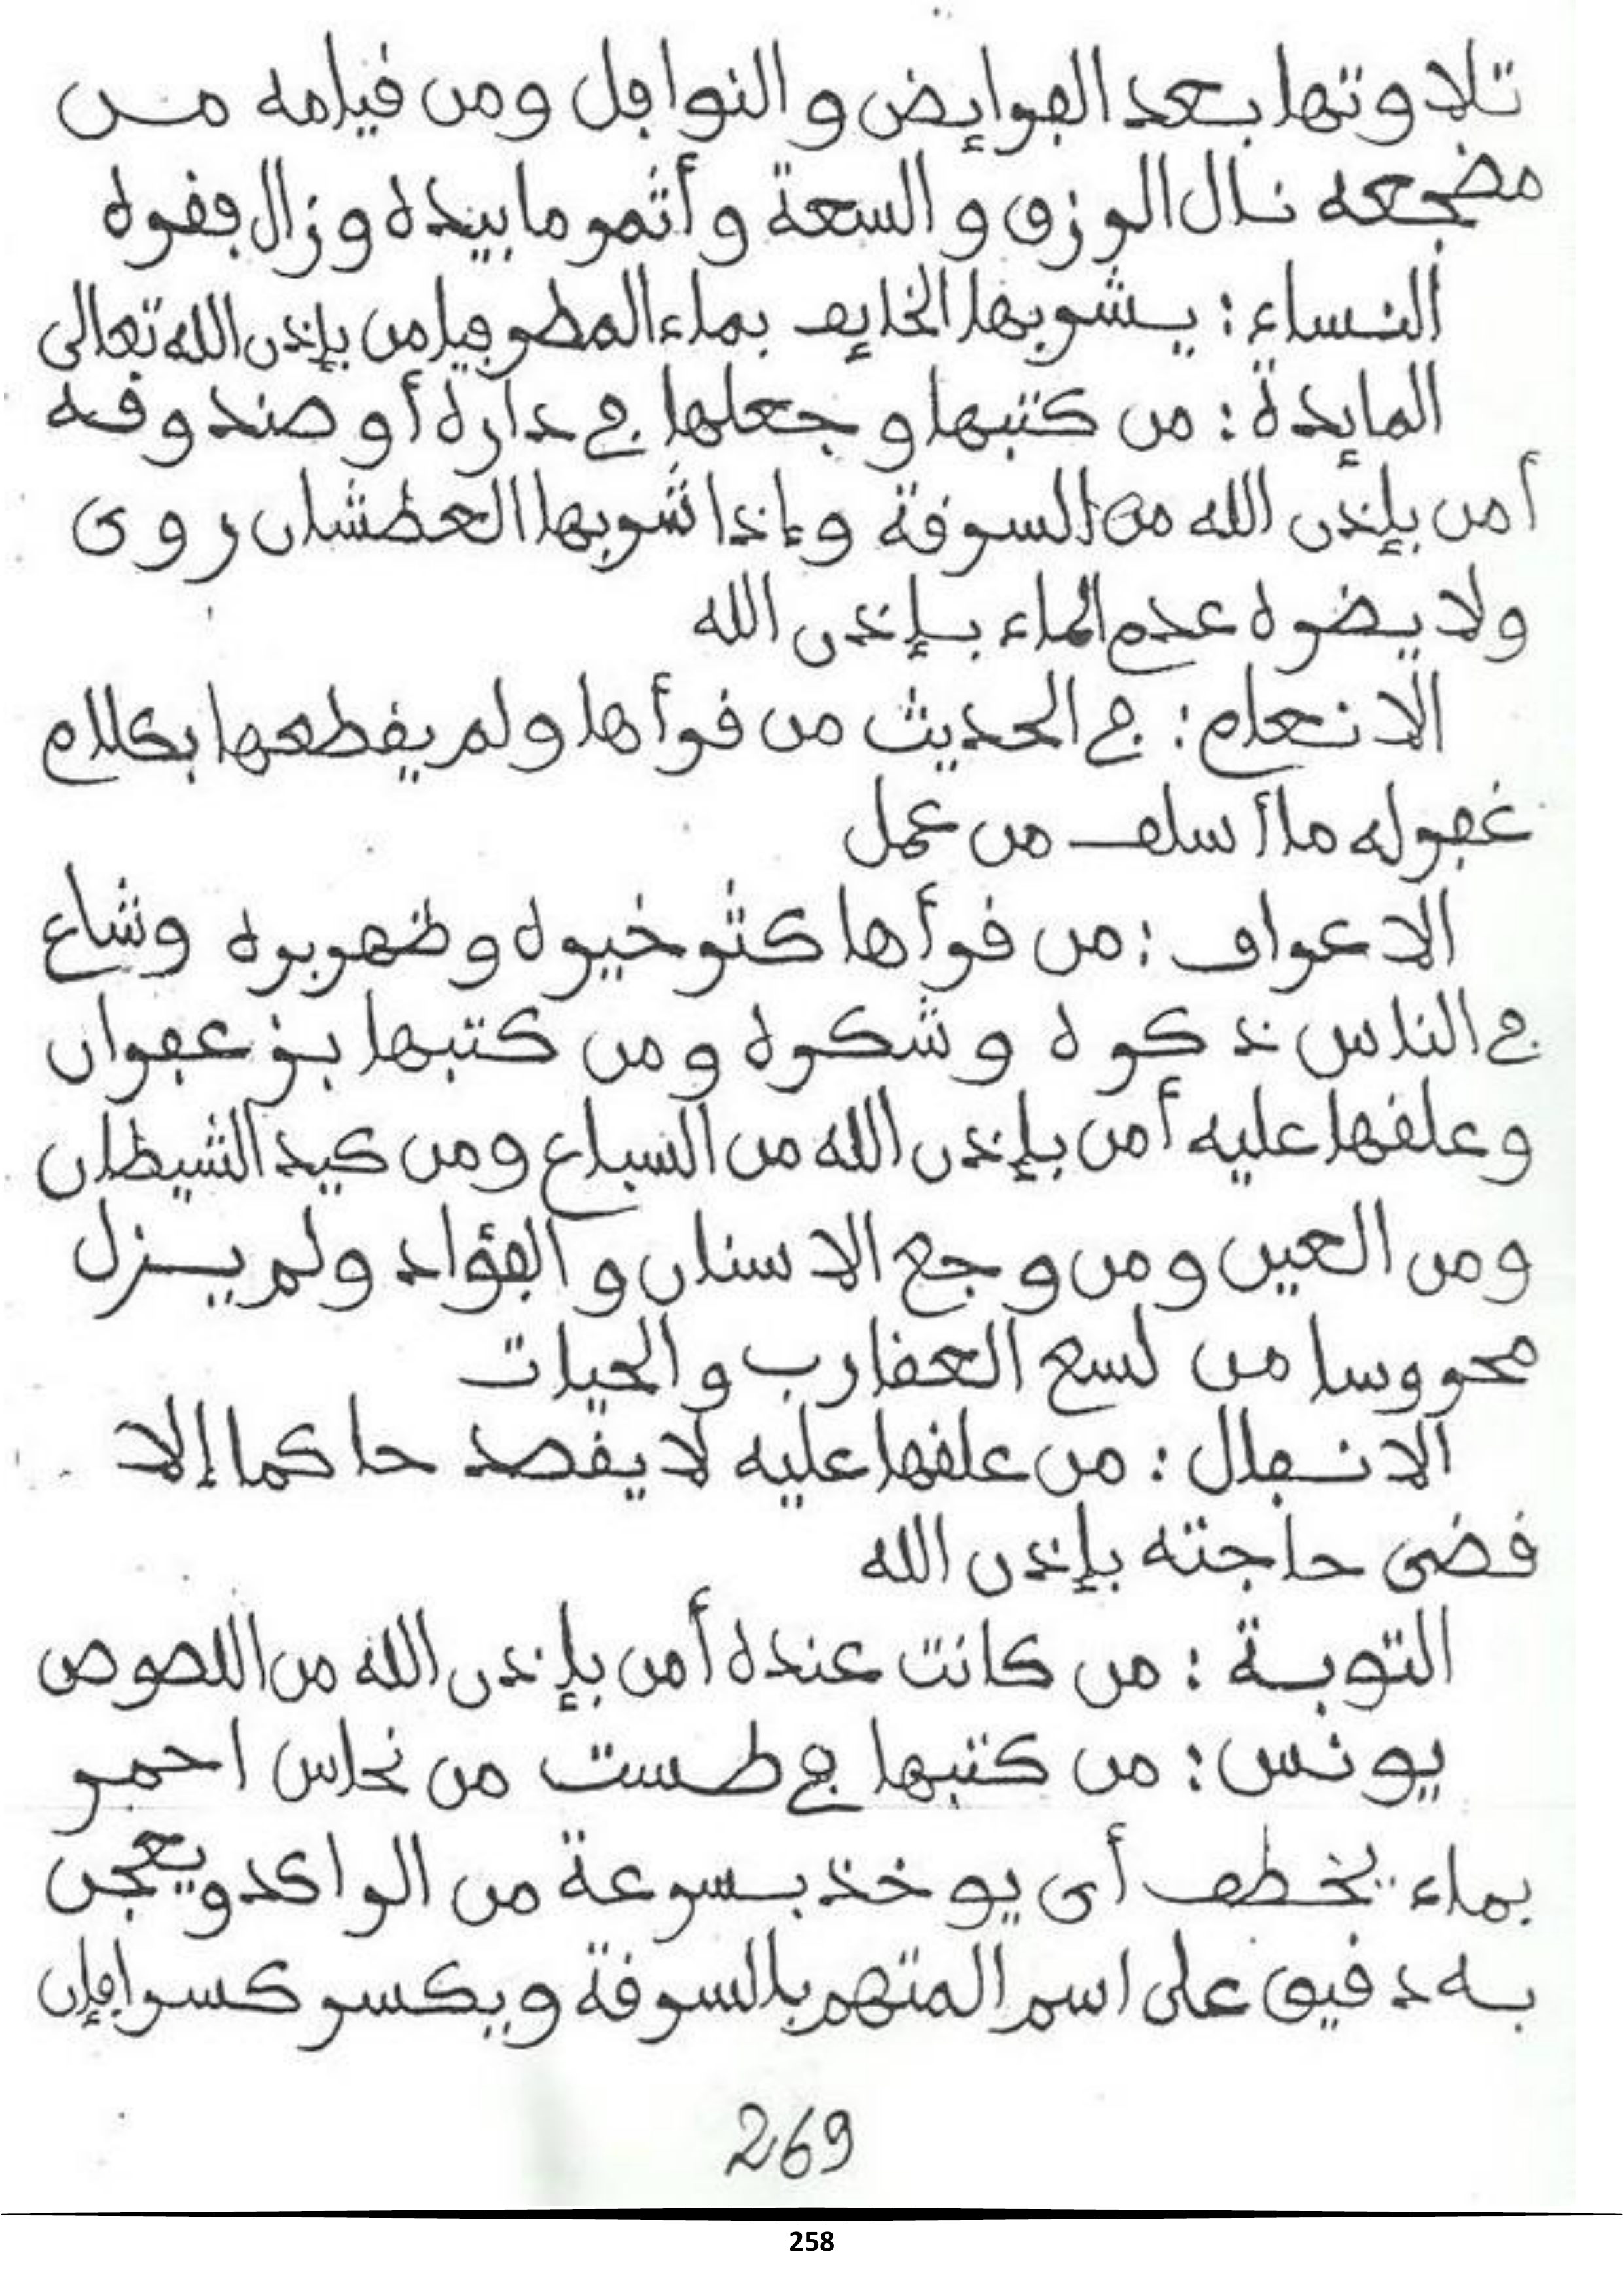 تلاوتها بعد الفرايض و النوافل ومن قيامه من
مضجعه نال الرزق و السعة و أثمر ما بيده و زال فقره
النساء : يشربها الخايف بماء المطر فيامن بإذن الله تعالى
المايدة : من كتبها و جعلها في داره أو صندوقه
أمن بإذن الله من السرقة وإذا شربها العطشان روى
ولا يضره عدم الماء بإذن الله
الانعام : في الحديث من قرأها ولم يقطعها بكلام
غفر له ما أسلف من عمل
الاعراف : من قرأها كثر خيره و ظهر بره وشاع
في الناس ذكره و شكره و من كتبها بزعفران
وعلقها عليه أمن بإذن الله من السباع ومن كيد الشيطان
ومن العين ومن وجع الاسنان و الفؤاد ولم يزل
محروسا من لسع العقارب و الحيات
الانفال : من علقها عليه لا يقصد حاكما إلا
قضى حاجته بإذن الله
التوبة : من كانت عنده أمن بإذن الله من اللصوص
يونس : من كتبها في طست من نحاس احمر
بماء يخطف أى يوخذ بسرعة من الراكد ويعجن
به دقيق على اسم المتهم بالسرقة ويكسر كسرا فإن
269
258